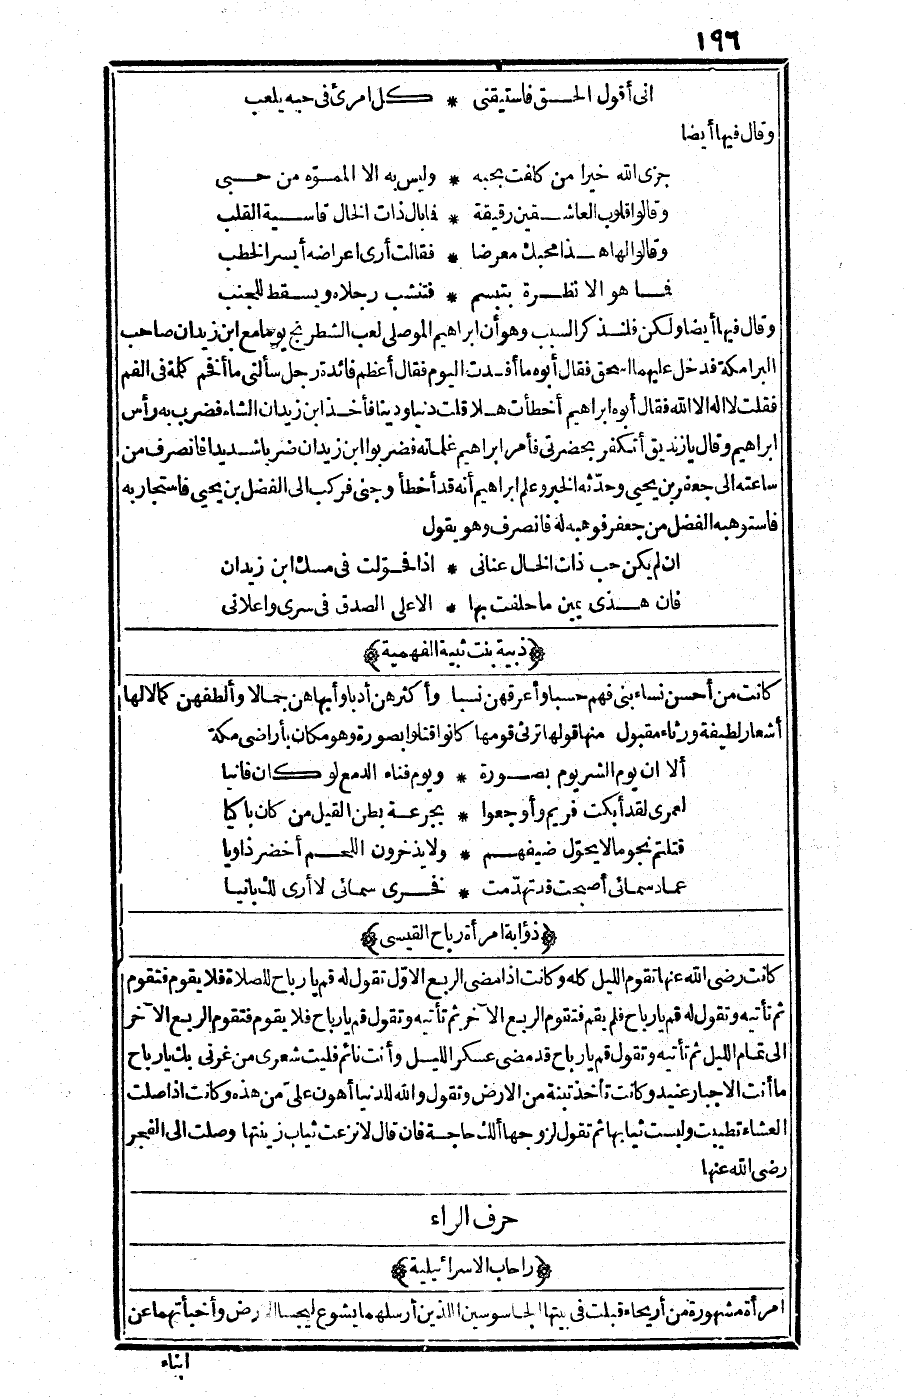 ١٩٦
انى أقول الحـــق فاستيقنى * كـــل امرئ فى حبه يلعب
وقال فيها أيضا
جزى الله خيرا من كلفت بحبه * وليس به الا المموّه من حــبى
وقالوا قلوب العاشـــقين رقيقة * فما بال ذات الخال قاســـية القلب
وقالوا لها هـــذا محبك معرضا * فقالت أرى اعراضه أيسر الخطب
فمـــا هو الا نظـــرة بتبسم * فتنشب رجلاه ويسقط للجنب
وقال فيها أيضا ولكن فلنـــذكر السبب وهو أن ابراهيم الموصلى لعب الشطرنج يوما مع ابن زيدان صاحب
البرامكة فدخل عليهما اسحق فقال أبوه ما أفـــدت اليوم فقال أعظم فائدة رجل سألنى ما أفخم كلمة فى الفم
فقلت لا اله الا الله فقال أبوه ابراهيم أخطأت هـــلا قلت دنيا ودينا فأخـــذ ابن زيدان الشاه فضرب به رأس
ابراهيم وقال يا زنديق أتكفر بحضرتى فأمر ابراهيم غلمانه فضربوا ابن زيدان ضربا شـــديدا فانصرف من
ساعته الى جعفر بن يحيى وحدّثه الخبر وعلم ابراهيم أنه قد أخطأ وجنى فركب الى الفضل بن يحيى فاستجار به
فاستوهبه الفضل من جعفر فوهبه له فانصرف وهو يقول
ان لم يكن حب ذات الخال عنانى * اذا فحوّلت فى مسك ابن زيدان
فان هـــذى يمين ما حلفت بها * الا على الصدق فى سرى واعلانى
﴿ذبية بنت ثبية الفهمية﴾
كانت من أحسن نساء بنى فهم حسبا وأعرقهن نسبا وأكثرهن أدبا وأبهاهن جمالا وألطفهن كمالا لها
أشعار لطيفة ورثاء مقبول منها قولها ترثى قومها كانوا قتلوا بصورة وهو مكان بأراضى مكة
ألا ان يوم الشر يوم بصـــورة * ويوم فناء الدمع لو كـــان فانيا
لعمرى لقد أبكت قريم وأوجعوا * بجرعـــة بطن القيل من كان باكيا
قتلتم نجوما لا يحوّل ضيفهـــم * ولا يذخرون اللحـــم أخضر ذاويا
عماد سمائى أصبحت قد تهدّمت * فخـــرى سمائى لا أرى لك بانيا
﴿ذؤابة امرأة رباح القيسى﴾
كانت رضى الله عنها تقوم الليل كله وكانت اذا مضى الربع الاوّل تقول له قم يا رباح للصلاة فلا يقوم فتقوم
ثم تأتيه وتقول له قم يا رباح فلم يقم فتقوم الربع الآخر ثم تأتيه وتقول قم يا رباح فلا يقوم فتقوم الربع الآخر
الى تمام الليل ثم تأتيه وتقول قم يا رباح قد مضى عسكر الليـــل وأنت نائم فليت شعرى من غرنى بك يا رباح
ما أنت الا جبار عنيد وكانت تأخذ تبنة من الارض وتقول والله للدنيا أهون علىّ من هذه وكانت اذا صلت
العشاء تطيبت ولبست ثيابها ثم تقول لزوجها ألك حاجة فان قال لا نزعت ثياب زينتها وصلت الى الفجر
رضى الله عنها
حرف الراء
﴿راحاب الاسرائيلية﴾
امرأة مشهورة من أريحاء قبلت فى بيتها الجاسوسين اللذين أرسلهما يشوع ليجسا الارض وأخبأتهما عن
ابناء